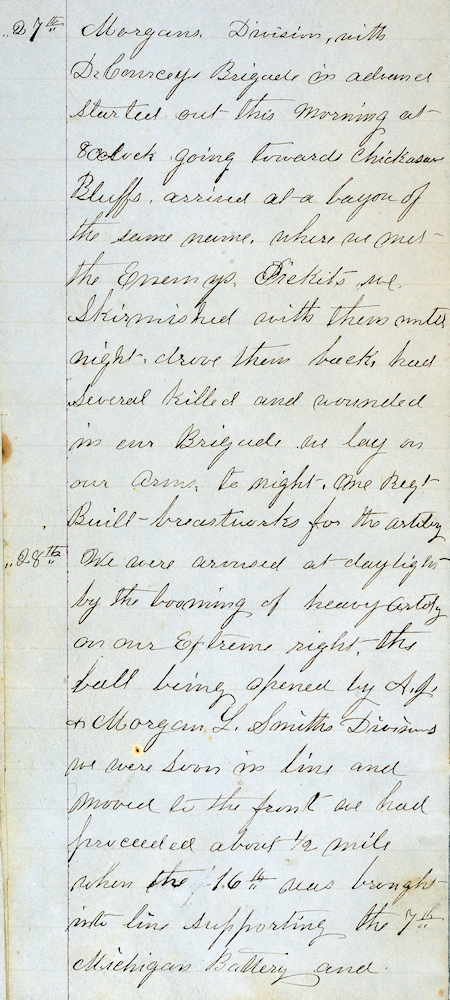 „ 27th Morgans. Division, with
DeCourceys Brigade in advance
started out this Morning at
8 oclock going towards Chickasaw
Bluffs. arrived at a bayou of
the same name. where we met
the Enemys. Pickits we
Skirmished with them until
night. drove them back, had
several killed and wounded
in our Brigade we lay on
our Arms. to night. one Regt
Built breastworks for the artilry
„ 28th We were aroused at daylight
by the booming of heavy artilry
on our Extreme right. the
ball being opened by A.J.
& Morgan L. Smiths Divisions
we were soon in line and
moved to the front we had
proceeded about 1/2 mile
when the 16th was brought
into line supporting the 7th
Michigan Battery and